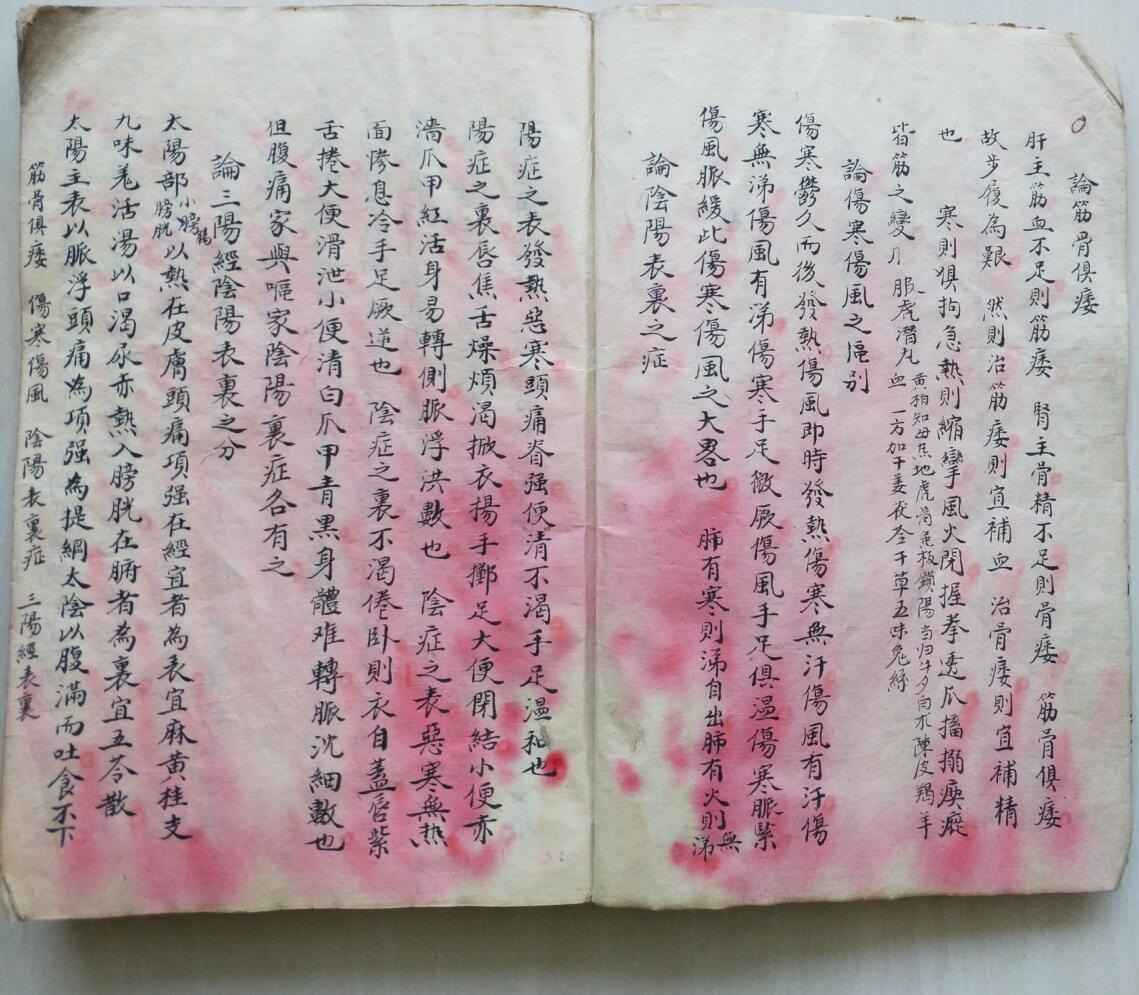 論筋骨俱痿
肝主筋血不足則筋痿 腎主骨精不足則骨痿 筋骨俱痿
故步履為艱 然則治筋痿則宜補血 治骨痿則宜補精
也 寒則俱拘急熱則縮攣風火閉握拳透爪搐搦瘈瘲
皆筋之變 服虎潛丸 黄柏知母 地虎骨龜板鎖陽当归牛夕白朮陳皮羯羊
血 一方加干姜茯苓干草五味兔絲
論傷寒傷風之區别
傷寒鬱久而後發熱傷風即時發熱傷寒無汗傷風有汗傷
寒無涕傷風有涕傷寒手足微厥傷風手足俱温傷寒脈緊
傷風脈緩此傷寒傷風之大畧也 肺有寒則涕自出肺有火則無涕
論陰陽表裏之症
陽症之表發熱惡寒頭痛脊强便清不渴手足温和也
陽症之裏唇焦舌燥煩渴掀衣揚手擲足大便閉結小便赤
濇爪甲紅活身易轉側脈浮洪數也 陰症之表惡寒無热
面慘息冷手足厥逆也 陰症之裏不渴倦卧則衣自蓋唇紫
舌捲大便滑泄小便清白爪甲青黑身體难轉脈沈細數也
但腹痛家與嘔家陰陽裏症各有之
論三陽經陰陽表裏之分
太陽部小膀腸膀胱以熱在皮膚頭痛項强在經宜者為表宜麻黄桂支
九味羌活湯以口渴尿赤熱入膀胱在腑者為裏宜五苓散
太陽主表以脈浮頭痛為項强為提綱太陰以腹滿而吐食不下
筋骨俱痿 傷寒傷風 陰陽表裏症 三陽經表裏